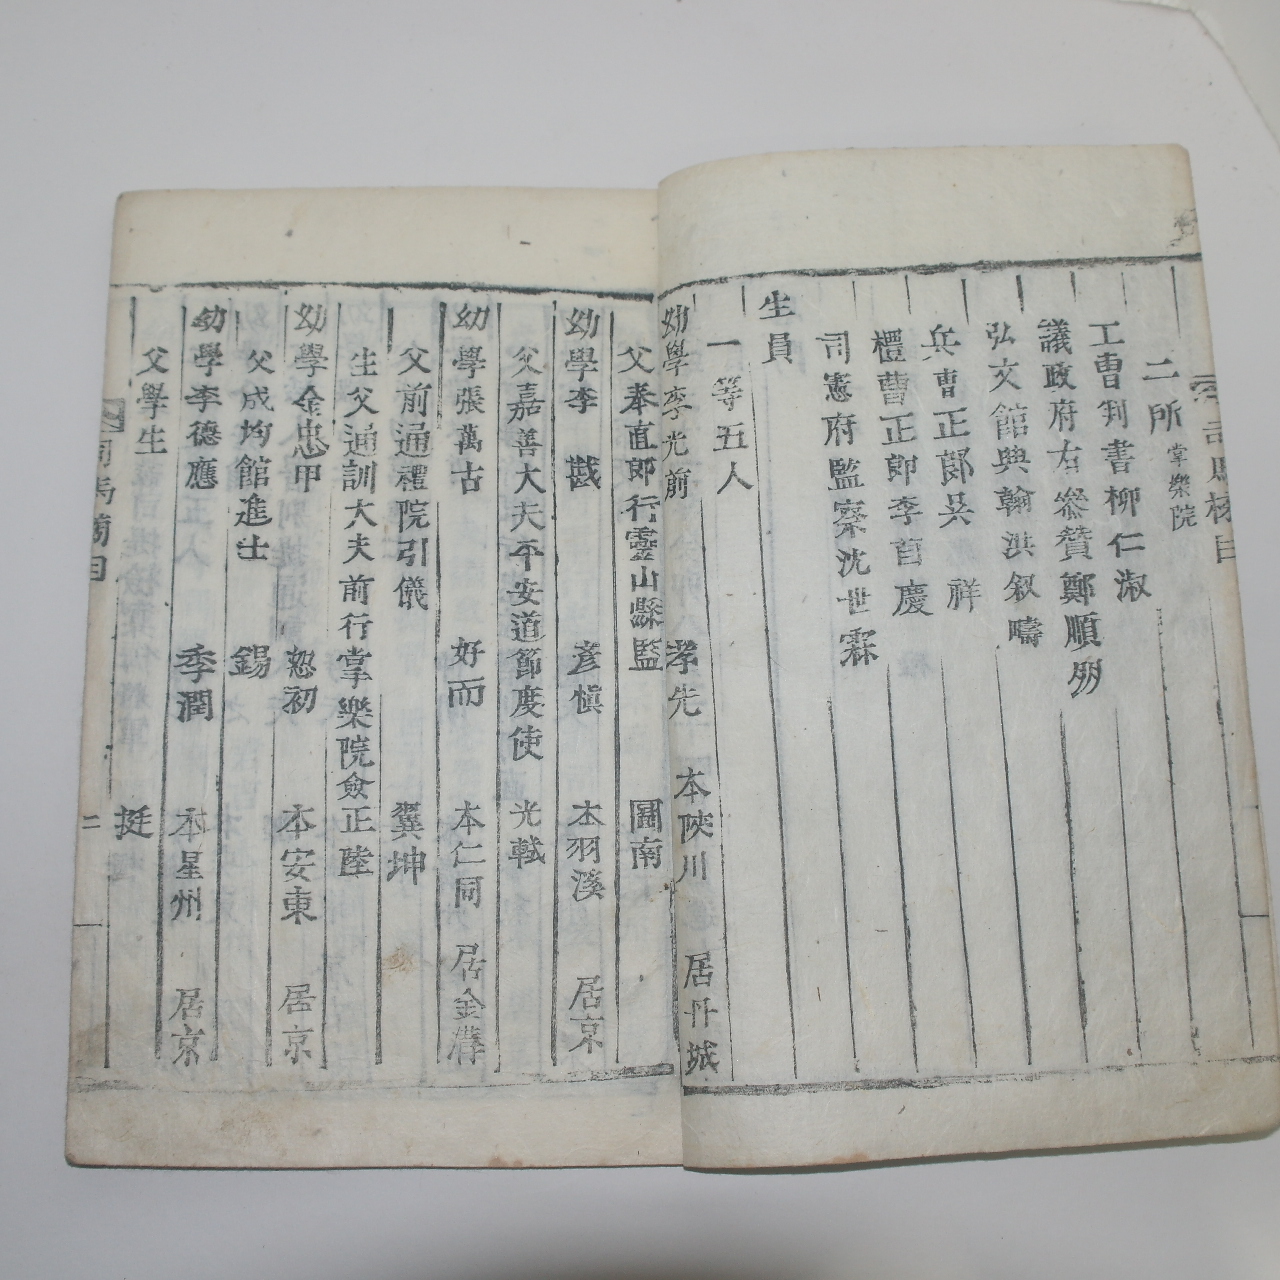 二所 掌樂院
工曹判書柳仁淑
議政府右參贊鄭順朋
弘文館典翰洪叙疇
兵曹正郞吳 祥
禮曹正郞李首慶
司憲府監察沈世霖
生員
一等五人
幼學李光前 孝先 本陜川 居丹城
父奉直郞行靈山縣監 圖南
幼學李 戡 彦愼 本羽溪 居京
父嘉善大夫平安道節度使 光軾
幼學張萬古 好而 本仁同 居金溝
父前通禮院引儀 翼坤
生父通訓大夫前行掌樂院僉正陸
幼學金忠甲 恕初 本安東 居京
父成均館進士 錫
幼學李德應 季潤 本星州 居京
父學生 挺